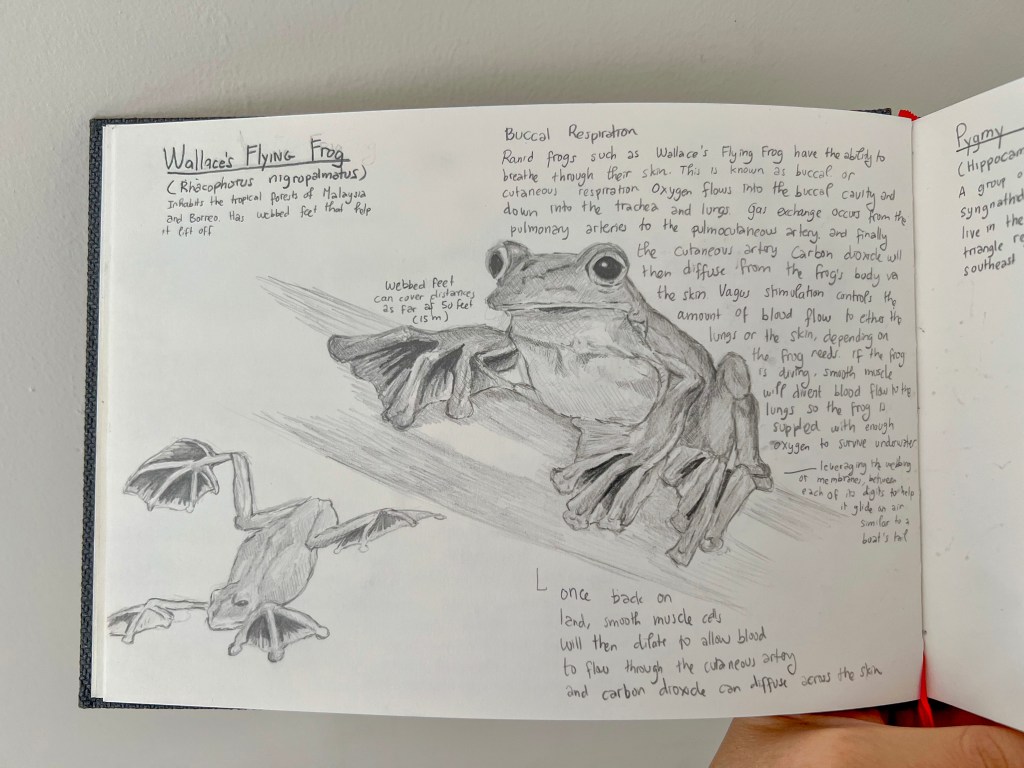 Wallace's Flying Frog
(Rhacophorus nigropalmatus)
Inhabits the tropical forests of Malaysia
and Borneo. Has webbed feet that help
it lift off
Webbed feet
can cover distances
as far af 50 feet
(15m)
Buccal Respiration
Ranid frogs such as Wallace's Flying Frog have the ability to
breathe through their skin. This is known as buccal or
cutaneous respiration Oxygen flows into the buccal cavity and
down into the trachea and lungs. Gas exchange occurs from the
pulmonary arteries to the pulmocutaneous artery, and finally
the cutaneous artery Carbon dioxide will
then diffuse from the frog's body via
the skin Vagus stimulation controls the
amount of blood flow to either the
lungs or the skin, depending on
the frog needs. If the frog
is diving, smooth muscle
will divert blood flow to the
lungs so the frog is
supplied with enough
oxygen to survive underwater
leveraging the webbing
or membranes, between
each of its digits to help
it glide on air
similar to a
boat's
once back on
land, smooth muscle cells
will then dilate to allow blood
to flow through the cutaneous artery
and carbon dioxide can diffuse across the skin
Pygmy
(Hippocam
A group o
syngnathid
live in the
triangle re
southeast